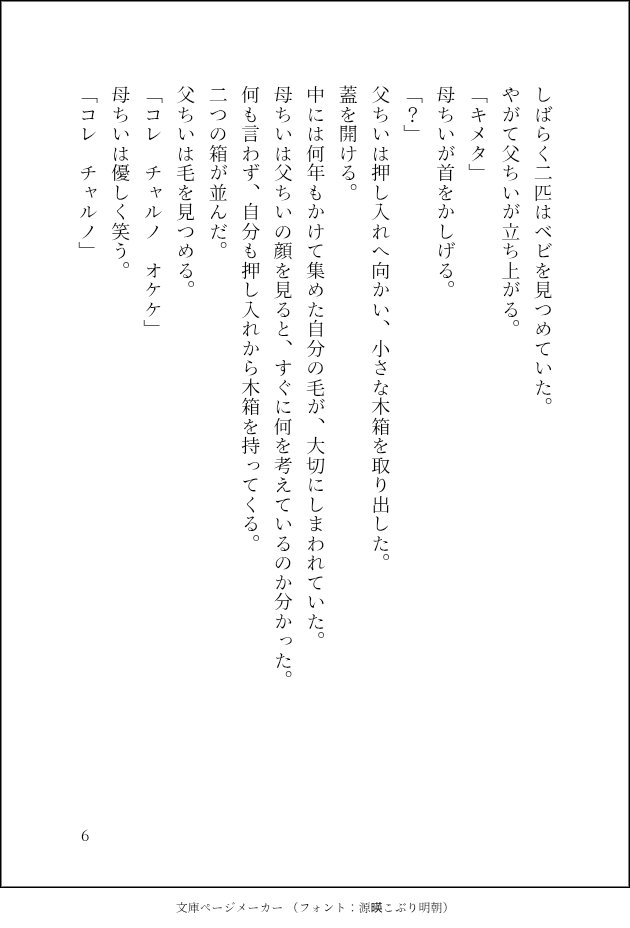 しばらく二匹はベビを見つめていた。
やがて父ちいが立ち上がる。
「キメタ」
母ちいが首をかしげる。
「？」
父ちいは押し入れへ向かい、小さな木箱を取り出した。
蓋を開ける。
中には何年もかけて集めた自分の毛が、大切にしまわれていた。
母ちいは父ちいの顔を見ると、すぐに何を考えているのか分かった。
何も言わず、自分も押し入れから木箱を持ってくる。
二つの箱が並んだ。
父ちいは毛を見つめる。
「コレ　チャルノ　オケケ」
母ちいは優しく笑う。
「コレ　チャルノ」
6
文庫ページメーカー （フォント：源暎こぶり明朝）